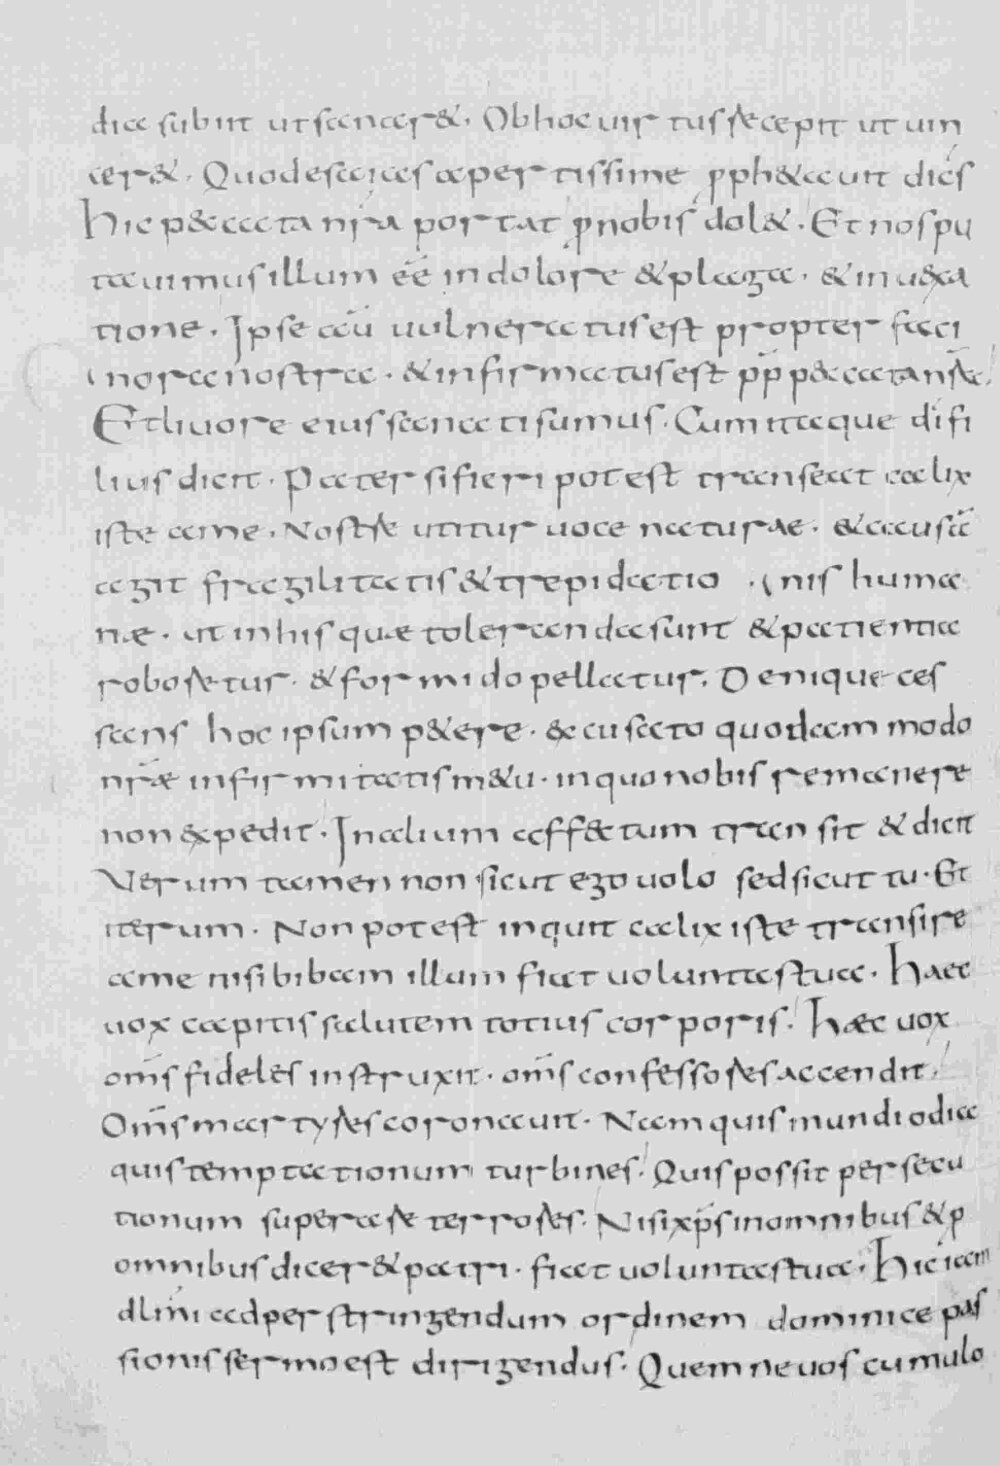 dia subiit ut sanar&. Ob hoc uirtus se cepit ut uin
cer&. Quod esaias apertissime pph&auit diēs
hic p&cata nr̄a portat p̱ nobis dol&. Et nos pu
tauimus illum eē in dolore & plaga. & in uexa
tione. Ipse aūt uulneratus est propter faci
nora nostra. & infirmatus est pp̄ p&cata nr̄a.
Et liuore eius sanati sumus. Cum itaque dī fi
lius dicit. Pater si fieri potest transeat calix
iste ame. Nostre utitur uoce naturae. & causā
agit fragilitatis & trepidatio nis huma
næ. ut in his quæ toleranda sunt & patientia
roboretur. & formido pellatur. Denique ces
sans hoc ipsum p&ere. acusato quodam modo
nr̄æ infirmitatis m&u. in quo nobis remanere
non expedit. In alium aff&tum transit & dicit
Verum tamen non sicut ego uolo sed sicut tu. Et
iterum. Non potest inquit calix iste transire
ame nisi bibam illum fiat uoluntas tua. Haec
uox capitis salutem totius corporis. Hæc uox
om̄s fideles instruxit. om̄s confessores accendit.
Om̄s martyres coronauit. Nam quis mundi odia
quis temptationum turbines. Quis possit persecu
tionum superare terrores. Nisi xp̄s in omnibus & p
omnibus dicer& patri. fiat uoluntas tua. Hic iam
dl̄mi ad perstringendum ordinem dominice pas
sionis sermo est dirigendus. Quem ne uos cumulo